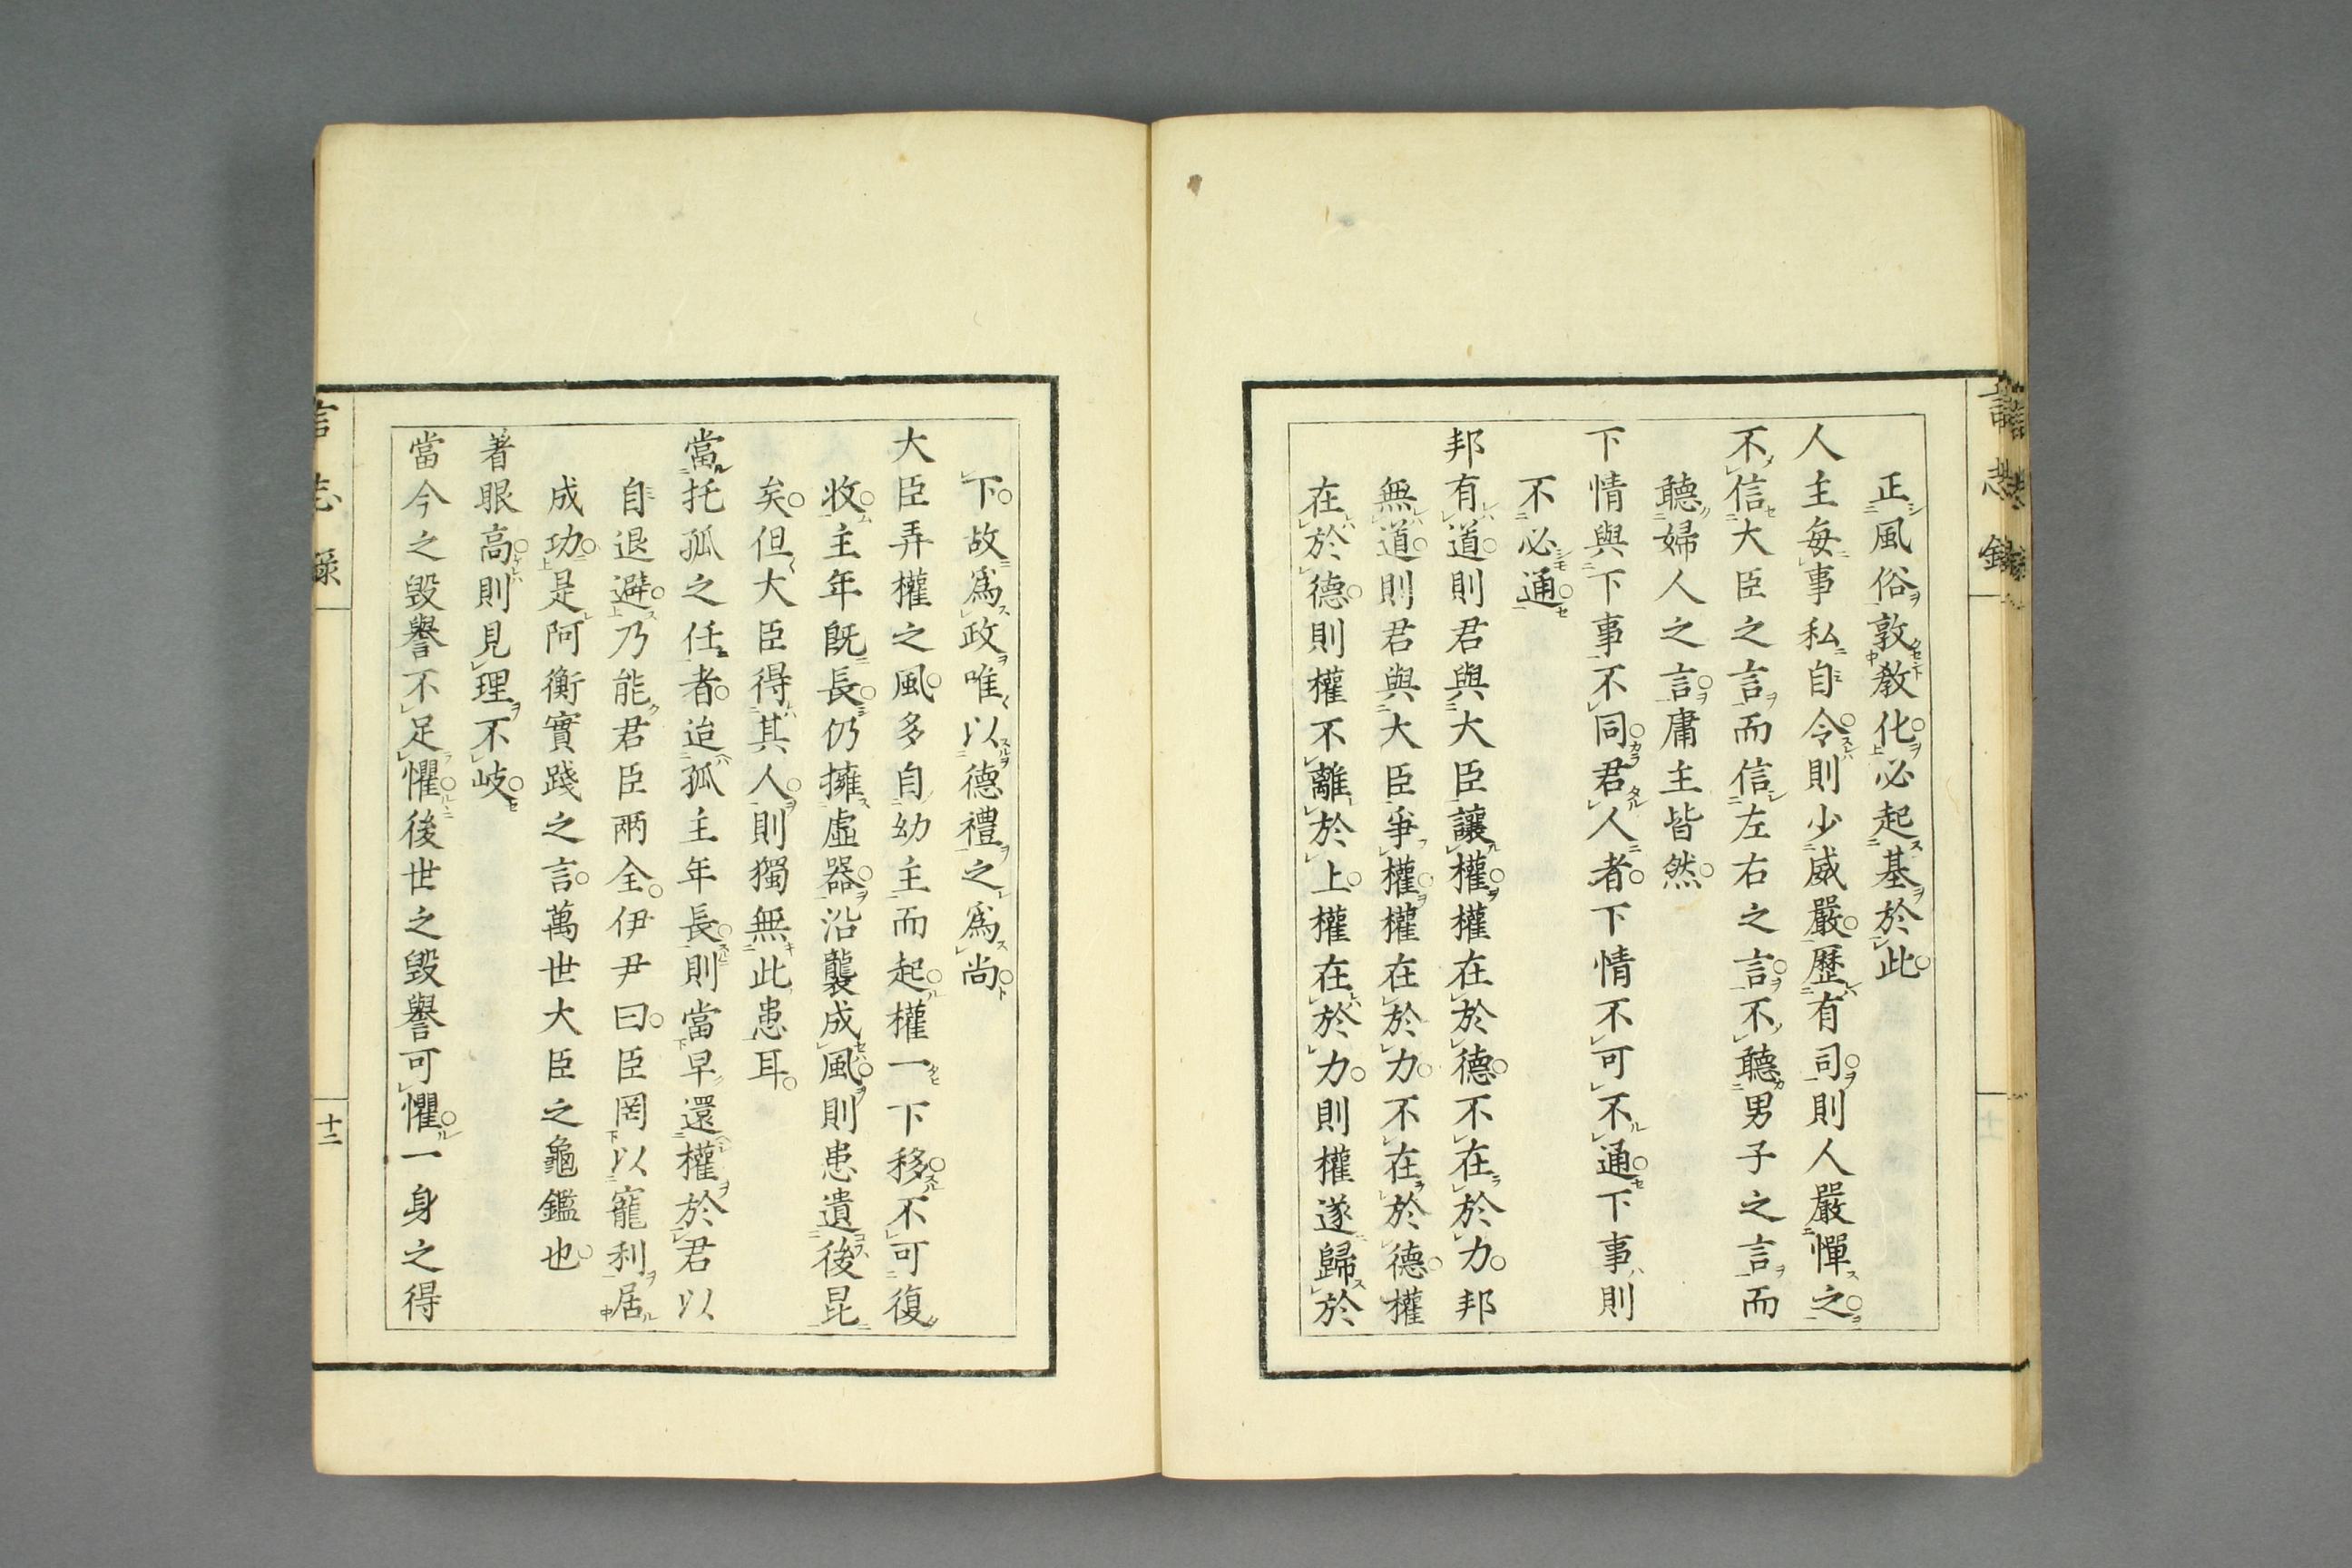 正風俗敦敎化必起基於此
人主每事私自令則少威嚴歷有司則人嚴憚之
不信大臣之言而信左右之言不聽男子之言而
聽婦人之言庸主皆然
下情與下事不同君人者下情不可不通下事則
不必通
邦有道則君與大臣讓權權在於德不在於力邦
無道則君與大臣爭權權在於力不在於德權
在於德則權不離於上權在於力則權遂歸於
下故爲政唯以德禮之爲尚
大臣弄權之風多自幼主而起權一下移不可復
收主年旣長仍擁虛器沿襲成風則患遺後昆
矣但大臣得其人則獨無此患耳
當托孤之任者迨孤主年長則當早還權於君以
自退避乃能君臣兩全伊尹曰臣罔以寵利居
成功是阿衡實踐之言萬世大臣之龜鑑也
著眼高則見理不岐
當今之毀譽不足懼後世之毀譽可懼一身之得
言志錄
十二